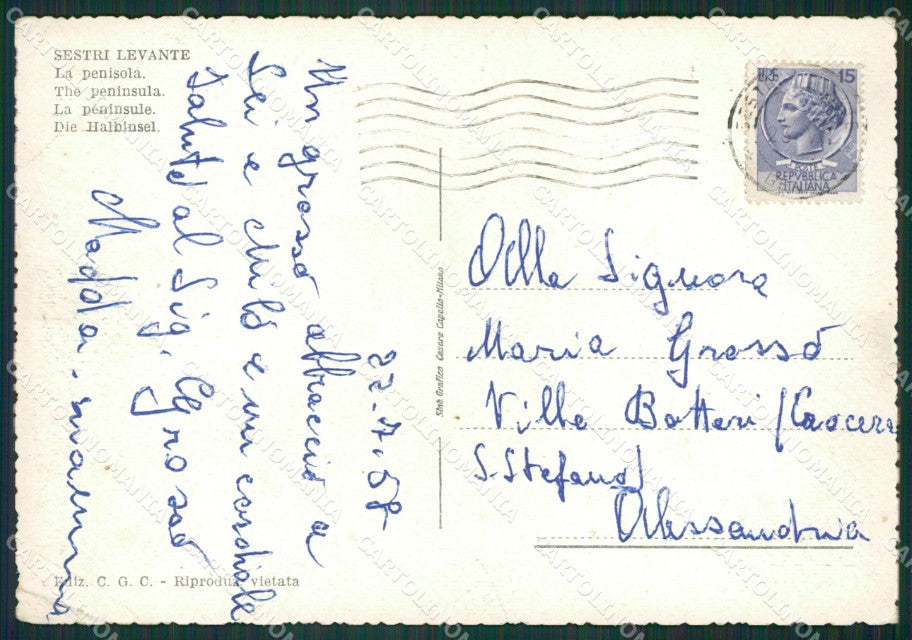 SESTRI LEVANTE
La penisola.
The peninsula.
La péninsule.
Die Halbinsel.
22-7-58
Un grosso abbraccio a
Lei e Milo e un cordiale
saluto al Sig. Grosso
Madda. mamma
Ediz. C. G. C. - Riproduz. vietata
Stab Grafico Cesare Capello-Milano
LIRE 15
POSTE
REPVBBLICA
ITALIANA
Alla Signora
Maria Grosso
Villa Botteri (Cascina
S. Stefano)
Alessandria
CARTOLINOMANIA